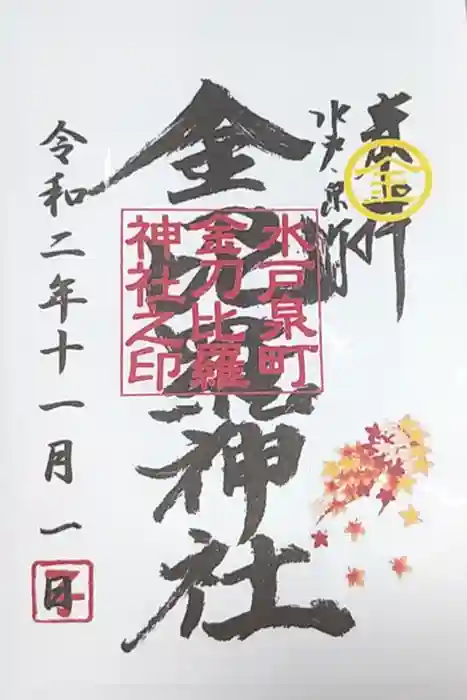 奉拝
水戸・泉町
金
金刀比羅神社
水戸泉町
金刀比羅
神社之印
令和二年十一月一日